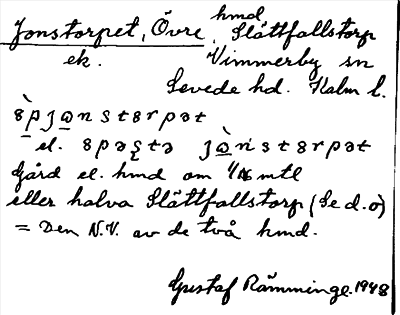 Jonstorpet, Övre, hmd Slättfallstorp
ek. Vimmerby sn
Sevede hd. Kalm l.
el.
Gård el. hmd om 1/16 mtl
eller halva Slättfallstorp (Se d.o)
= Den N.V. av de två hmd.
Gustaf Rämminge. 1948